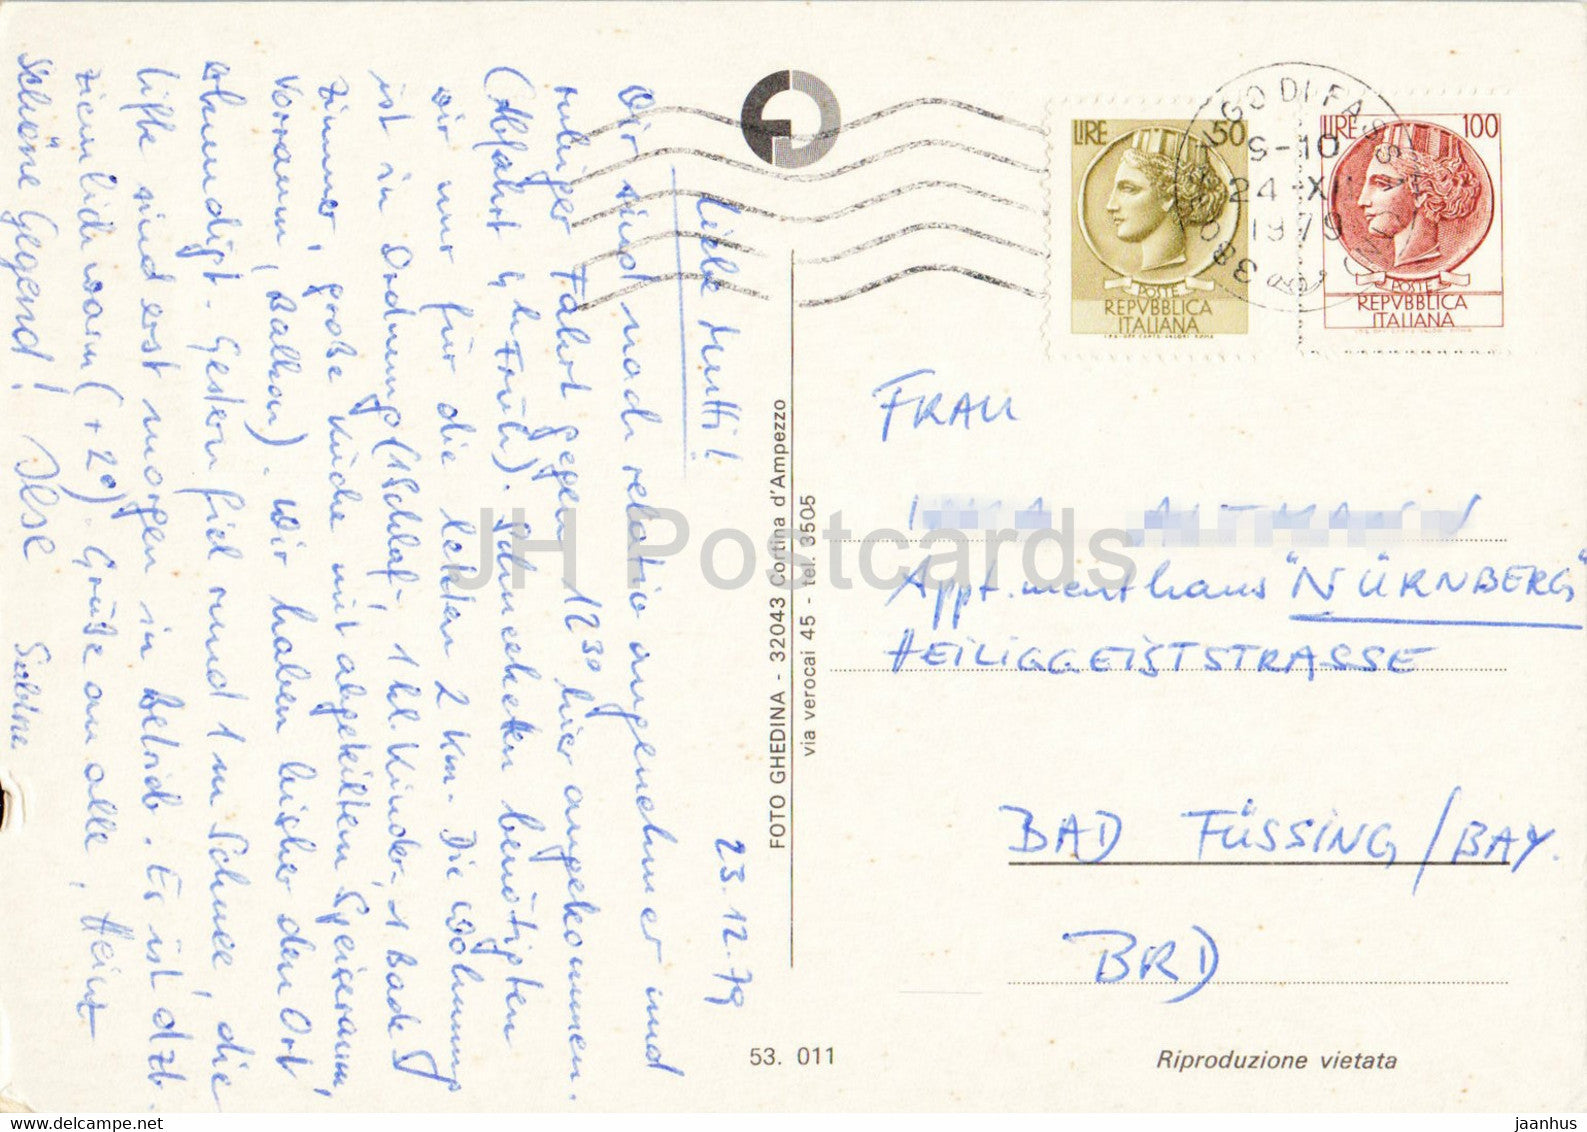 23.12.79
Liebe Mutti!
Wir sind nach relativ angenehmer und
ruhiger Fahrt gegen 12³⁰ hier angekommen.
(Abfahrt 4 h früh). Schneeketten benötigten
wir nur für die letzten 2 km. Die Wohnung
ist in Ordnung (1 Schlaf-, 1 kl. Kinder-, 1 Bade-
zimmer, große Küche mit abgeteiltem Speiseraum,
Vorraum, Balkon). Wir haben bisher den Ort
erkundigt. Gestern fiel rund 1 m Schnee, die
Lifte sind erst morgen in Betrieb. Es ist dzt.
ziemlich warm (+2°). Grüße an alle, Heinz
schöne Gegend! Ilse Sabine
FOTO GHEDINA - 32043 Cortina d'Ampezzo
via verocai 45 - tel. 3505
53. 011
LIRE 50
POSTE
REPVBBLICA
ITALIANA
LIRE 100
POSTE
REPVBBLICA
ITALIANA
GO DI FASSA
S-10
24-XI
1979
FRAU
Appt.menthaus "NÜRNBERG"
HEILIGGEISTSTRASSE
BAD FÜSSING/BAY.
BRD
Riproduzione vietata
JH Postcards
jaanhus